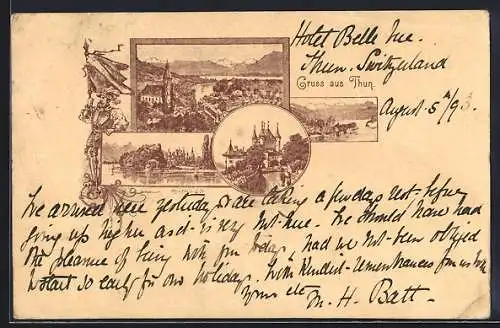 Hotel Belle Vue.
Thun. Switzerland
August 5th/93.
Gruss aus Thun.
We arrived here yesterday & are taking a few days rest before
going up higher as it is very hot here. We should have had
the pleasure of being with you today, had we not been obliged
to start so early for our holiday. With kindest remembrances from us both
Yours etc
M. H. Batt.